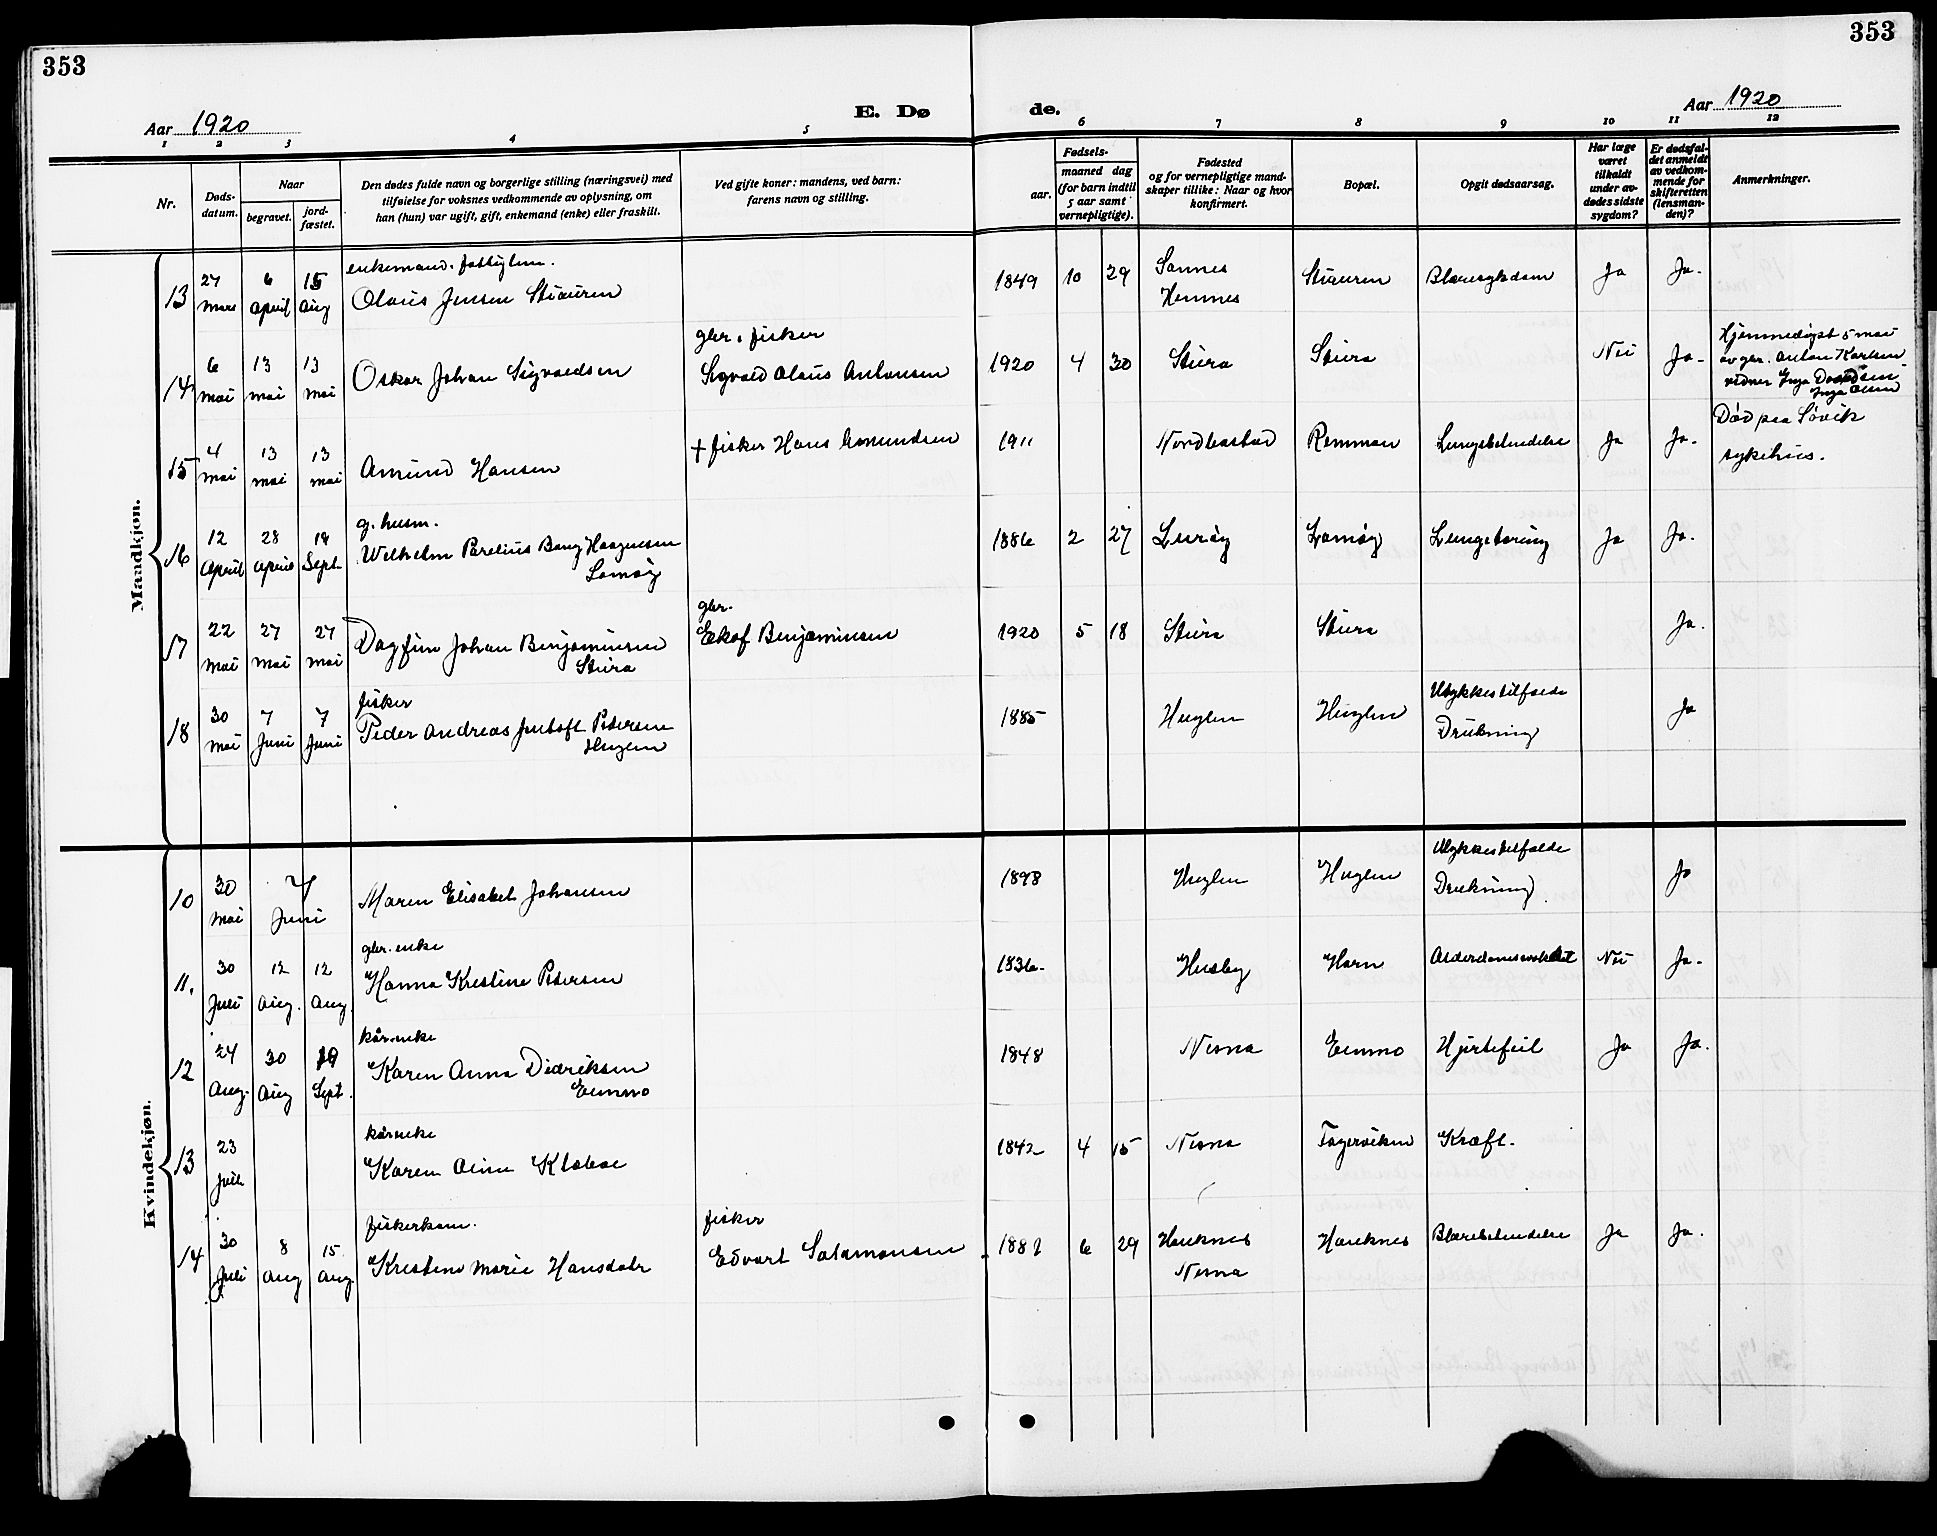 353
353
Aar 1920
E. Dø
de.
Aar 1920
1 2 3 4 5 6 7 8 9 10 11 12
Nr.
Døds-
datum.
Naar
begravet.
jord-
fæstet.
Den dødes fulde navn og borgerlige stilling (næringsvei) med
tilføielse for voksnes vedkommende av oplysning, om
han (hun) var ugift, gift, enkemand (enke) eller fraskilt.
Ved gifte koner: mandens, ved barn:
farens navn og stilling.
Fødsels-
aar.
maaned dag
(for barn indtil
5 aar samt
vernepligtige).
Fødested
og for vernepligtige mand-
skaper tillike: Naar og hvor
konfirmert.
Bopæl.
Opgit dødsaarsag.
Har læge
været
tilkaldt
under av-
dødes sidste
sygdom?
Er dødsfal-
det anmeldt
av vedkom-
mende for
skifteretten
(lensman-
den)?
Anmerkninger.
Mandkjøn.
13
27 mars
6 april
15 aug
enkemand.
Olaus Jensen Stiauren
1849 10 29
Sannes
Hemnes
Stiauren
Blæresykdom
Ja
Ja.
14
6 mai
13 mai
13 mai
Oskar Johan Sigvaldsen
gbr. fisker
Sigvald Olaus Antonsen
1920 4 30
Stiura
Stiura
Nei
Ja.
Hjemmedøpt 5 mai
av gbr. Anton Karlsen
vidner Inga
Inga Olsen
15
4 mai
13 mai
13 mai
Amund Hansen
+ fisker Hans Amundsen
1911
Remman
Lungebetændelse
Ja
Ja.
Død paa Søvik
sykehus.
16
12 April
28 April
19 Sept.
g. husm.
Wilhelm Parelius Bang Haagensen
Lamøy
1886 2 27
Lurøy
Lamøy
Lungetæring
Ja
Ja.
17
22 mai
27 mai
27 mai
Dagfin Johan Benjaminsen
Stiura
gbr.
Benjaminsen
1920 5 18
Stiura
Stiura
Ja.
18
30 mai
7 Juni
7 Juni
fisker
Peder Andreas Jentoft Petersen
Huglen
1885
Huglen
Huglen
Ulykkestilfælde
Drukning
Ja
Kvindekjøn.
10
30 mai
7 Juni
Maren Elisabet Johansen
1898
Huglen
Huglen
Ulykkestilfælde
Drukning
Ja
11.
30 Juli
12 Aug.
12 Aug.
gbr. enke
Hanna Kristine Petersen
1836.
Husby
Horn
Alderdomssvakhet
Nei
Ja.
12
24 Aug.
30 Aug
19 Sept.
kårenke
Karen Anna Didriksen
1848
Nesna
Hjertefeil
Ja
Ja.
13
23 Juli
kårenke
Karen
1842 4 15
Nesna
Fagerviken
Kræft.
14
30 Juli
8 Aug
15 Aug
fiskerkone.
Kristine Marie Hansdatr
fisker
Edvart Salamonsen
1882 6 29
Hauknes
Nesna
Hauknes
Blærebetændelse
Ja
Ja.